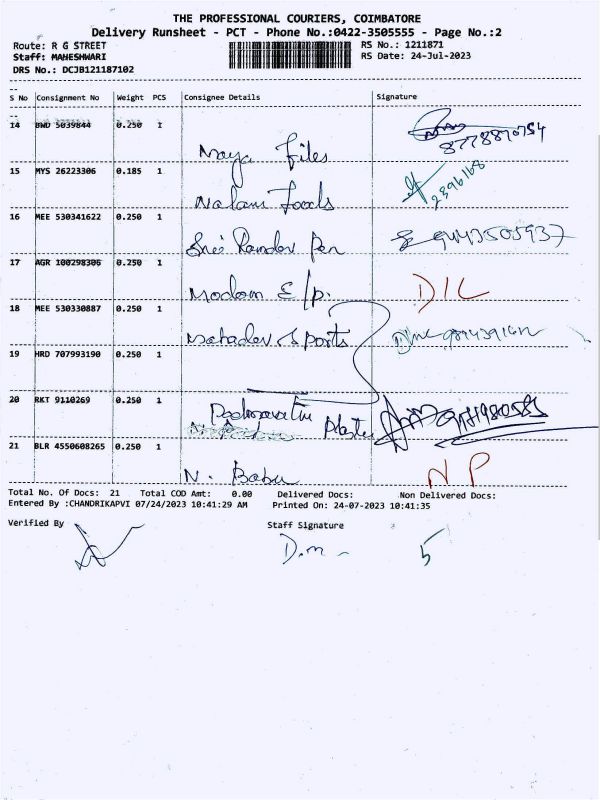 THE PROFESSIONAL COURIERS, COIMBATORE
Delivery Runsheet - PCT - Phone No.:0422-3505555 - Page No.:2
Route: R G STREET RS No.: 1211871
Staff: MAHESHWARI RS Date: 24-Jul-2023
DRS No.: DCJB121187102
S No Consignment No Weight PCS Consignee Details Signature
14 BWD 5039844 0.250 1
Maya Files 8778870754
15 MYS 26223306 0.185 1
Nalam Foods 2396168
16 MEE 530341622 0.250 1
Sree Ramdev Pen 9443505937
17 AGR 100298306 0.250 1
Modern E/p. D/L
18 MEE 530330887 0.250 1
Mahadev Sports
19 HRD 707993190 0.250 1
20 RKT 9110269 0.250 1
Padmavathi
21 BLR 4550608265 0.250 1
N. Babu NP
Total No. Of Docs: 21 Total COD Amt: 0.00 Delivered Docs: Non Delivered Docs:
Entered By :CHANDRIKAPVI 07/24/2023 10:41:29 AM Printed On: 24-07-2023 10:41:35
Verified By Staff Signature
D.m 5